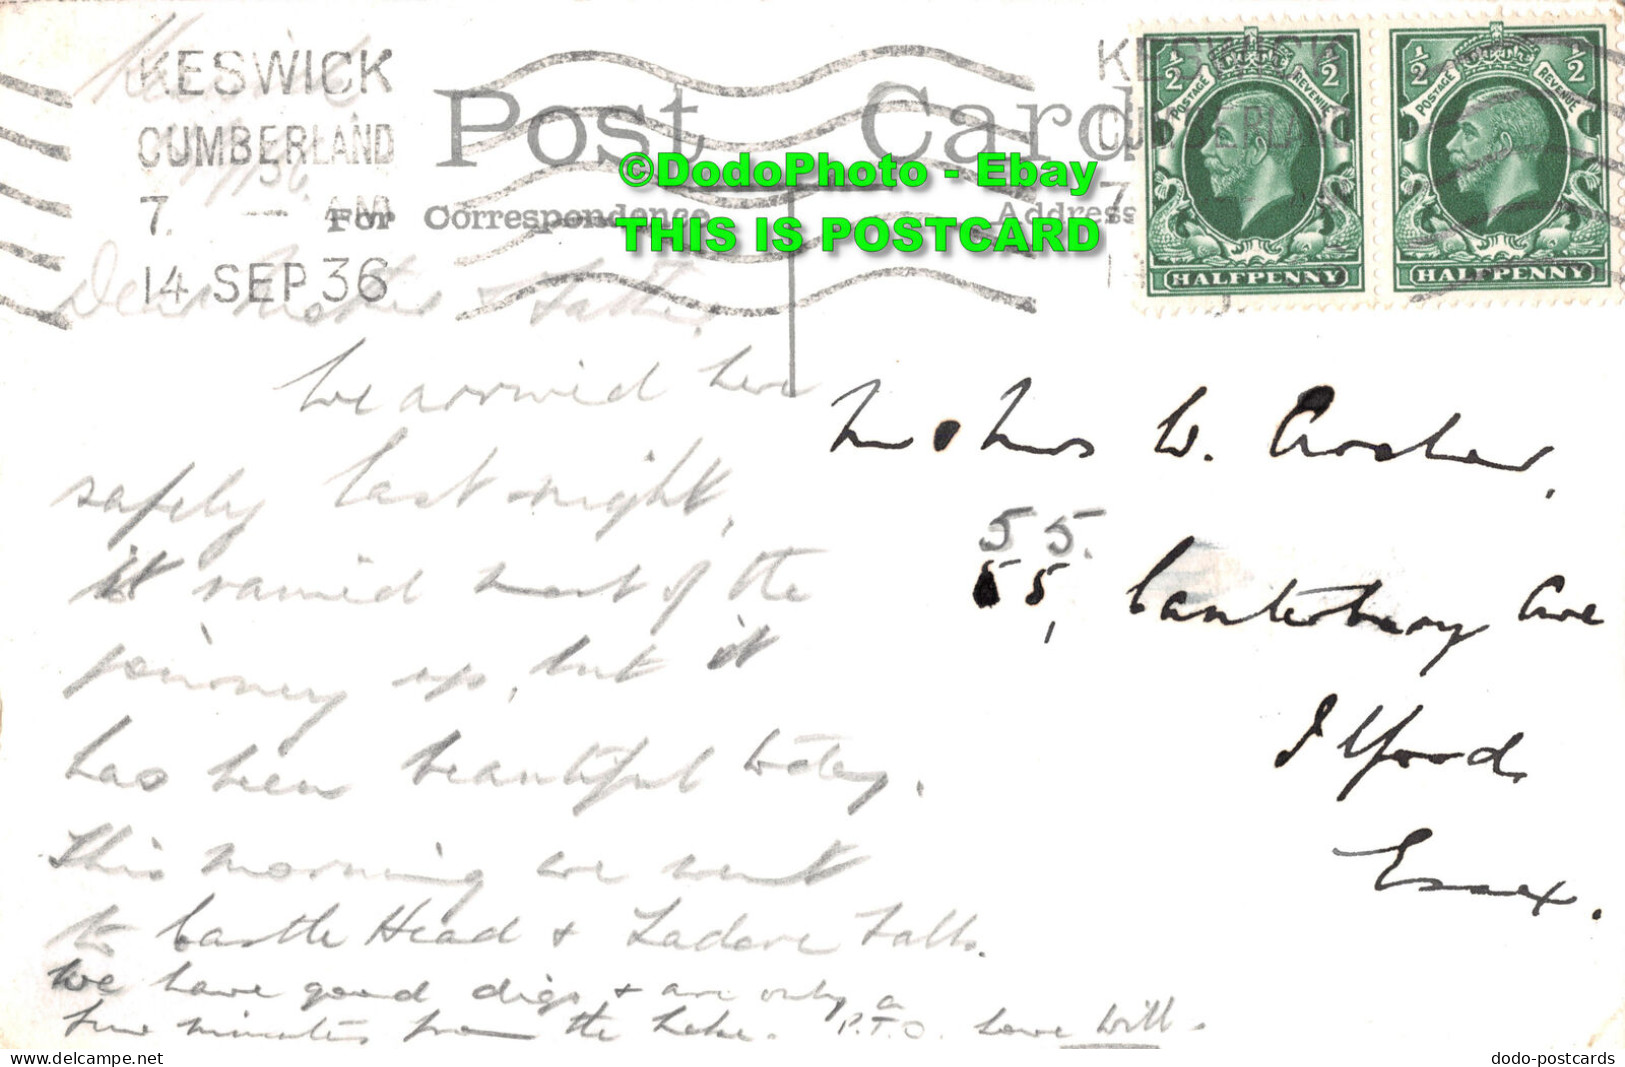 Keswick
KESWICK
CUMBERLAND
7. — AM
14 SEP 36
Post Card
For Correspondence
Address
KESWICK
CUMBERLAND
7
1
½ ½
POSTAGE REVENUE
HALFPENNY
½ ½
POSTAGE REVENUE
HALFPENNY
©DodoPhoto - Ebay
THIS IS POSTCARD
Dear Mother & Father,
We arrived here
safely last night,
it rained most of the
journey up, but it
has been beautiful today.
This morning we went
to Castle Head & Ladore Falls.
We have good digs & are only a
few minutes from the Lake. P.T.O. Love Will.
Mr & Mrs W. Crosher,
55.
55, Canterbury Ave
Ilford
Essex.
dodo-postcards